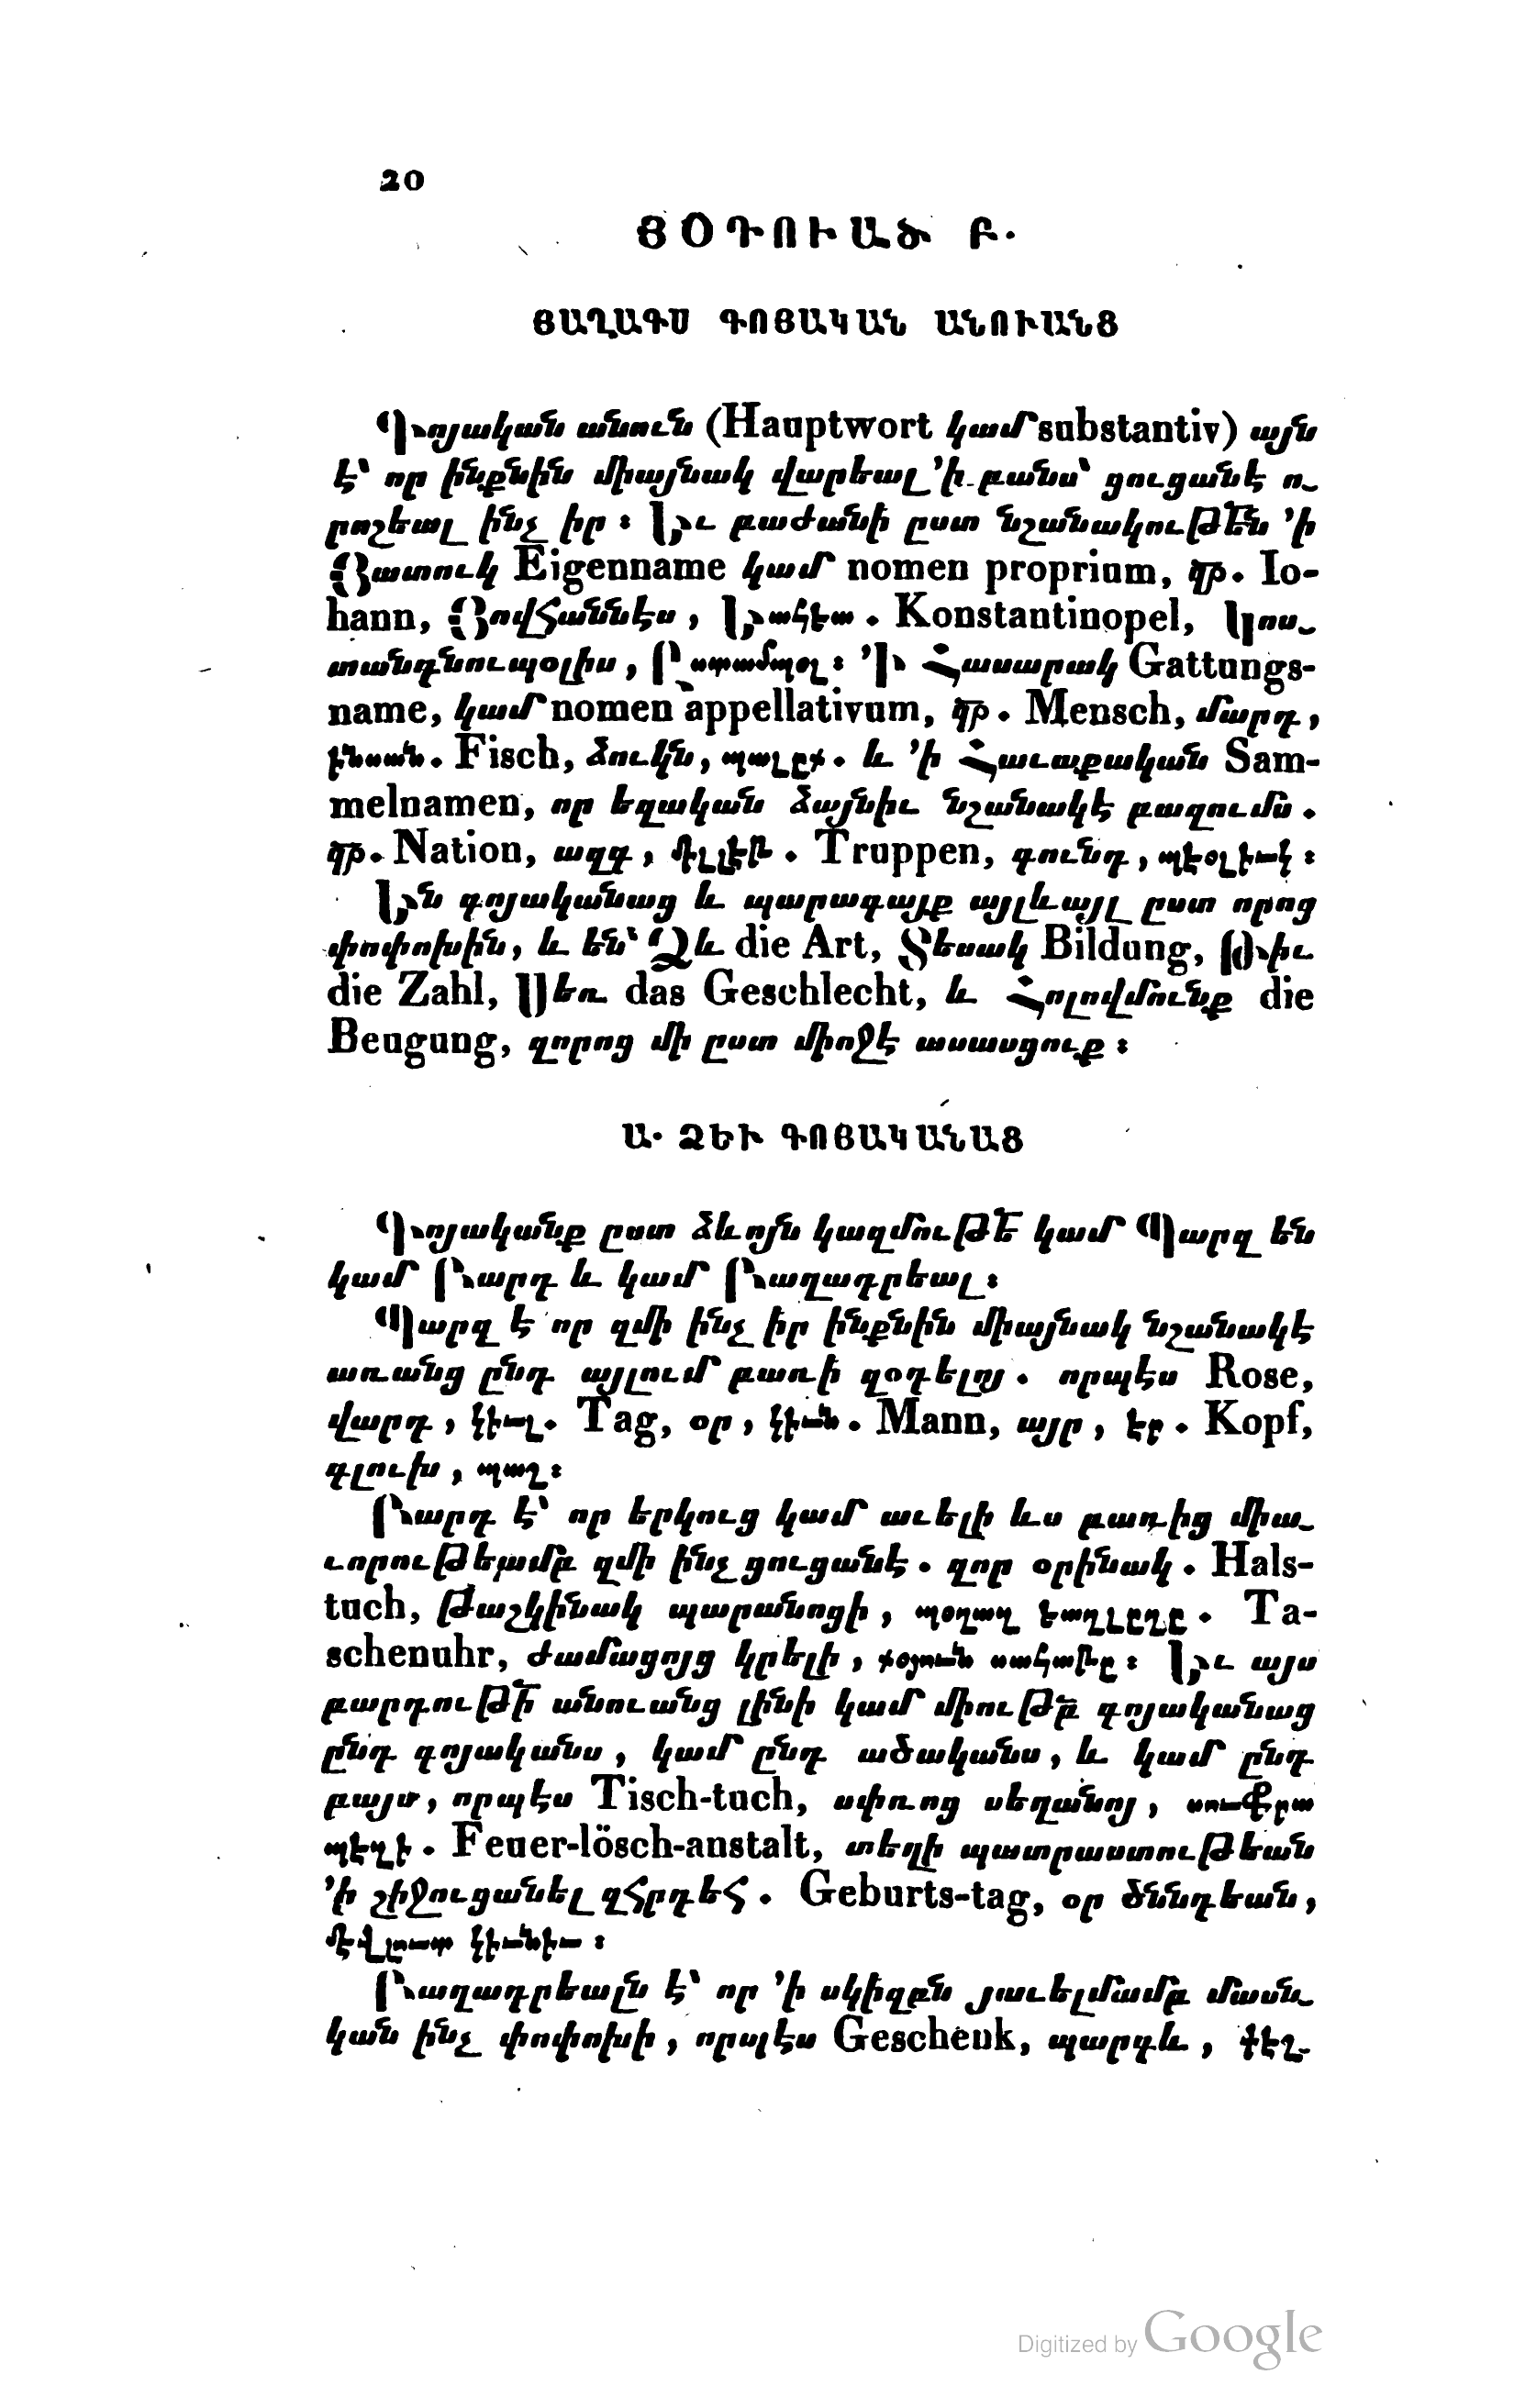 20
ՅՕԴՈՒԱԾ Բ.
ՅԱՂԱԳՍ ԳՈՅԱԿԱՆ ԱՆՈՒԱՆՑ
Գոյական անուն (Hauptwort կամ substantiv) այն
է՝ որ ինքնին միայնակ վարեալ ՚ի բանս՝ ցուցանէ ո֊
րոշեալ ինչ իր ։ Եւ բաժանի ըստ նշանակութեն ՚ի
Յատուկ Eigenname կամ nomen proprium, զր. Io-
hann, Յովհաննէս , Եահեա . Konstantinopel, Կոս֊
տանդնուպօլիս , Ըստամպօլ ։ ՚Ի Հասարակ Gattungs-
name, կամ nomen appellativum, զր. Mensch, մարդ ,
ինսան. Fisch, ձուկն , պալըխ. և ՚ի Հաւաքական Sam-
melnamen, որ եզական ձայնիւ նշանակէ բազումս .
զր. Nation, ազգ , միլլէթ . Truppen, գունդ , պէօլիւկ ։
Են գոյականաց և պարագայք այլևայլ ըստ որոց
փոփոխին, և են՝ Ձև die Art, Տեսակ Bildung, Թիւ
die Zahl, Սեռ das Geschlecht, և Հոլովմունք die
Beugung, զորոց մի ըստ միոջէ ասասցուք ։
Ա. ՁԵՒ ԳՈՅԱԿԱՆԱՑ
Գոյականք ըստ ձևոյն կազմութե կամ Պարզ են
կամ Բարդ և կամ Բաղադրեալ ։
Պարզ է որ զմի ինչ իր ինքնին միայնակ նշանակէ
առանց ընդ այլում բառի զօդելոյ . որպէս Rose,
վարդ , կիւլ. Tag, օր , կիւն . Mann, այր , էր . Kopf,
գլուխ , պաշ ։
Բարդ է՝ որ երկուց կամ աւելի ևս բառից միա֊
ւորութեամբ զմի ինչ ցուցանէ . զոր օրինակ . Hals-
tuch, թաշկինակ պարանոցի , պօղազ եաղլըղը . Ta-
schenuhr, ժամացոյց կրելի , խօյուն սահաթը ։ Եւ այս
բարդութի անուանց լինի կամ միութբ գոյականաց
ընդ գոյականս , կամ ընդ ածականս , և կամ ընդ
բայս , որպէս Tisch-tuch, սփռոց սեղանոյ , սուֆրա
պէզի . Feuer-lösch-anstalt, տեղի պատրաստութեան
՚ի շիջուցանել զհրդեհ . Geburts-tag, օր ծննդեան ,
մէվլուտ կիւնիւ ։
Բաղադրեալն է՝ որ ՚ի սկիզբն յաւելմամբ մասն֊
կան ինչ փոփոխի , որպէս Geschenk, պարգև ,
Digitized by Google